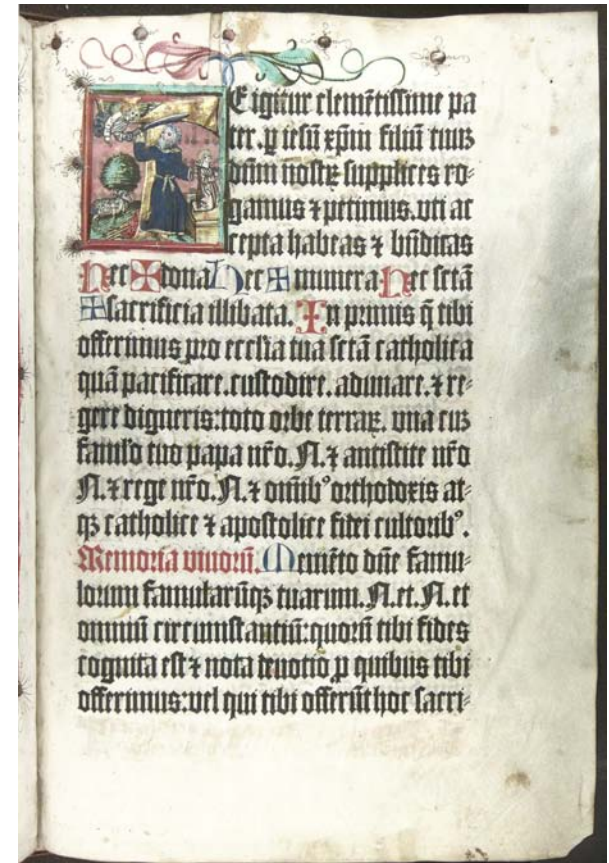 E igitur clemētissime pa
ter. ꝑ iesū xp̄m filiū tuuꝫ
dn̄m nostꝝ supplices ro⸗
gamus ⁊ petimus. vti ac
cepta habeas ⁊ bn̄dicas
Hec ✠ dona Hec ✠ munera Hec sctā
✠ sacrificia illibata. In primis q̄ tibi
offerimus pro eccl̄ia tua sctā catholica
quā pacificare. custodire. adunare. ⁊ re⸗
gere digneris: toto orbe terraꝝ. vna cuꝫ
famło tuo papa nr̄o. N. ⁊ antistite nr̄o
N. ⁊ rege nr̄o. N. ⁊ om̄ibꝰ orthodoxis at⸗
qꝫ catholice ⁊ apostolice fidei cultoribꝰ.
Memoria viuorū. Memēto dn̄e famu⸗
lorum famularūqꝫ tuarum. N. et. N. et
omniū circumstantiū: quorū tibi fides
cognita est ⁊ nota deuotio ꝑ quibus tibi
offerimus: vel qui tibi offerūt hoc sacri⸗